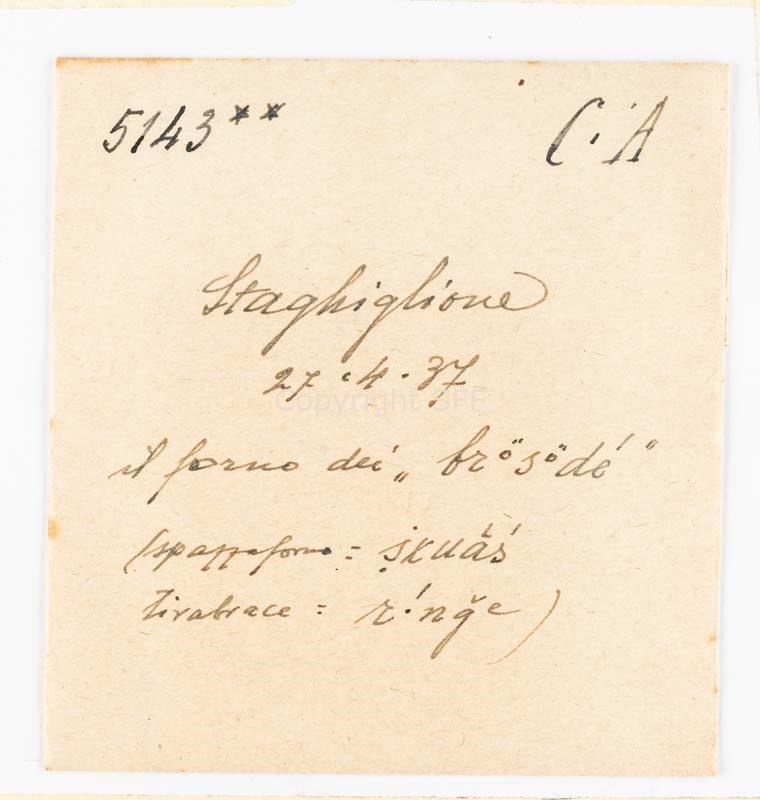 5143** C.A
Staghiglione
27.4.37
Copyright SPF
il forno dei „ brösödé "
(spazzaforno =
tirabrace = rínğe)